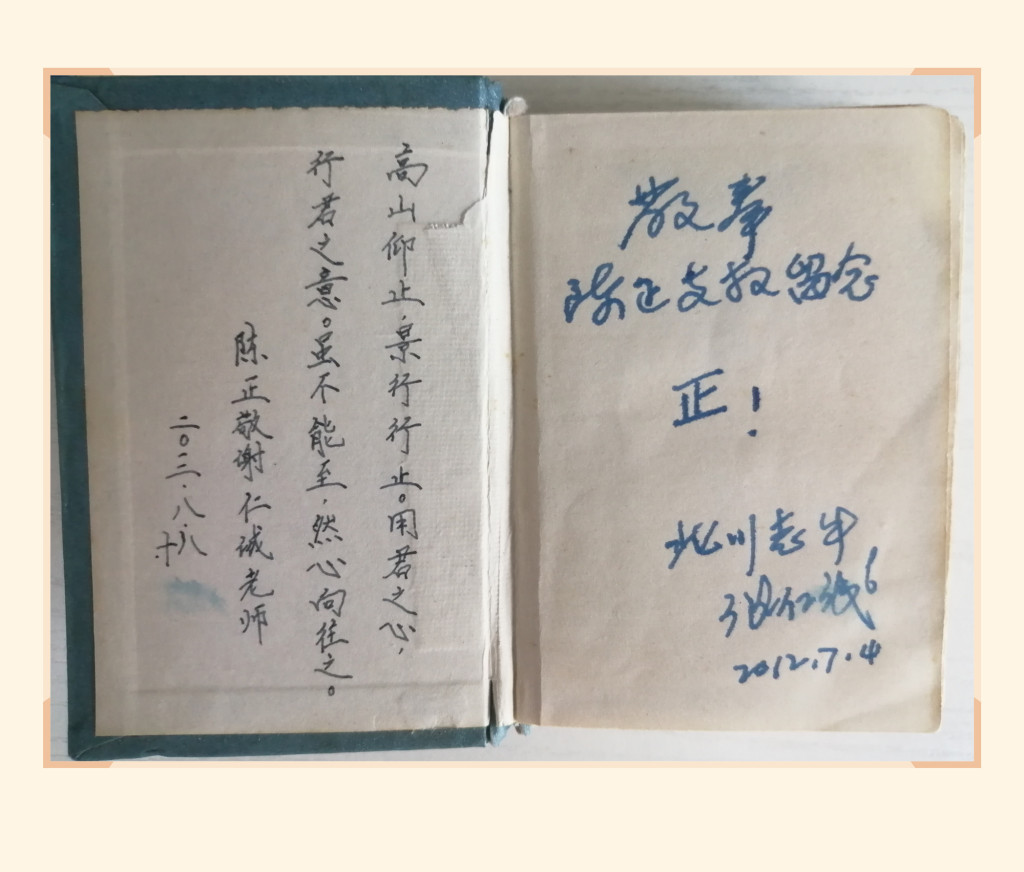 高山仰止，景行行止。用君之心，
行君之意。虽不能至，然心向往之。
陈正敬谢仁诚老师
二〇一二.八.十八
敬奉
陈正支教留念
正！
北川老牛
仁诚
2012.7.4